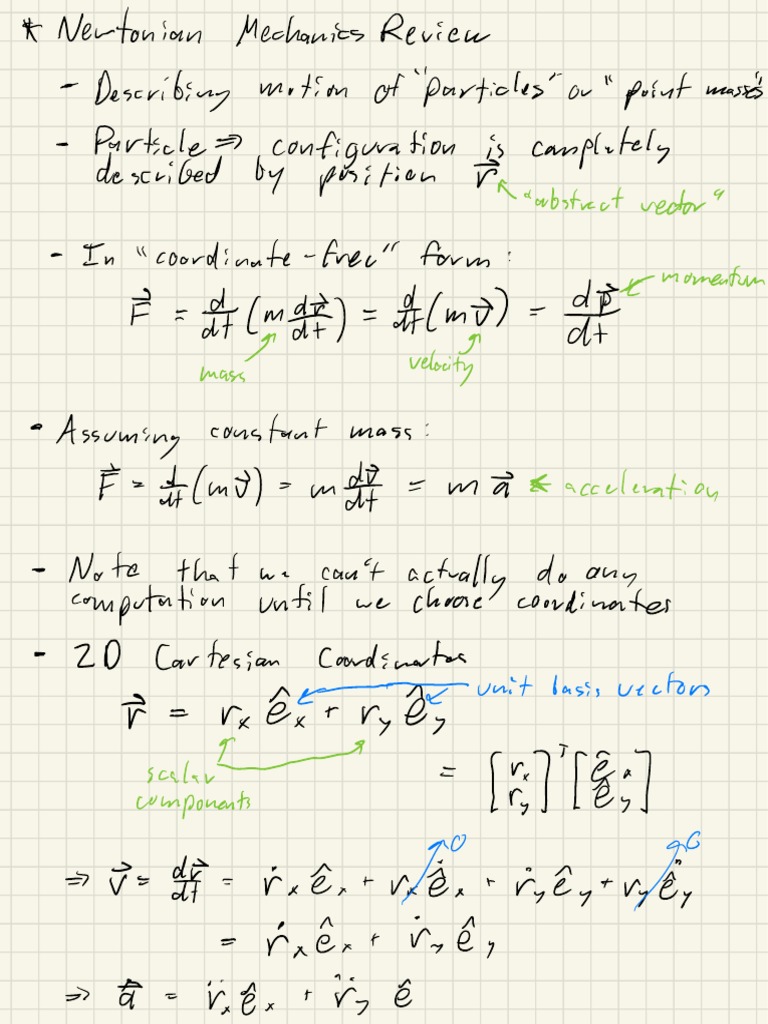 * Newtonian Mechanics Review
- Describing motion of "particles" or "point masses"
- Particle ⇒ configuration is completely
described by position r⃗
"abstract vector"
- In "coordinate-free" form:
F⃗ = d/dt (m dr⃗/dt) = d/dt (m v⃗) = dp⃗/dt
momentum
mass
velocity
• Assuming constant mass:
F⃗ = d/dt (m v⃗) = m dv⃗/dt = m a⃗ ← acceleration
- Note that we can't actually do any
computation until we choose coordinates
- 2D Cartesian Coordinates
r⃗ = r_x ê_x + r_y ê_y
unit basis vectors
scalar
components
= [r_x r_y]^T [ê_x ê_y]
⇒ v⃗ = dr⃗/dt = ṙ_x ê_x + r_x ê̇_x + ṙ_y ê_y + r_y ê̇_y
0
0
= ṙ_x ê_x + ṙ_y ê_y
⇒ a⃗ = r̈_x ê_x + r̈_y ê